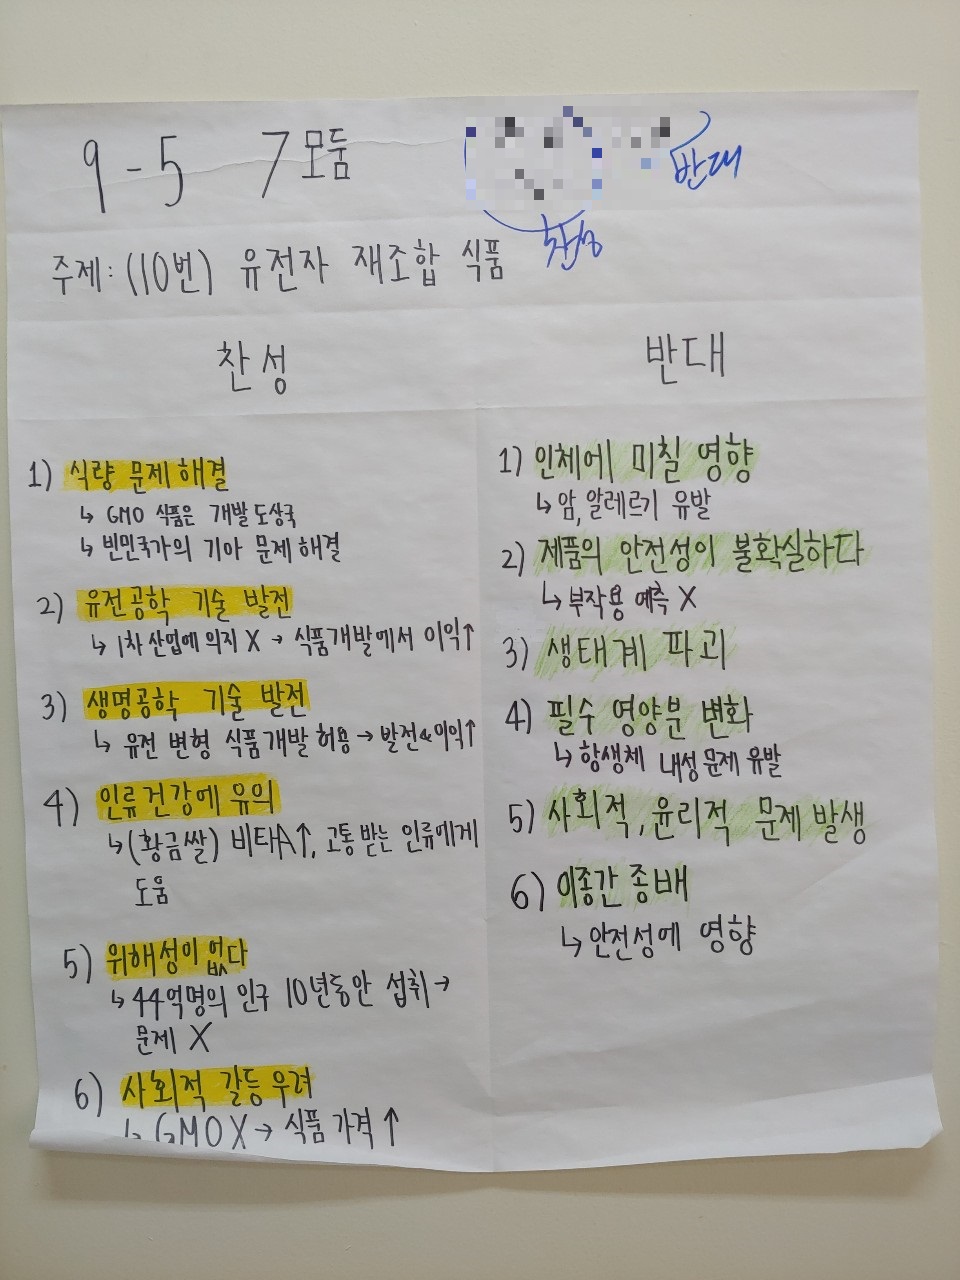 9-5 7모둠
반대
찬성
주제: (10번) 유전자 재조합 식품
찬성
1) 식량 문제 해결
↳ GMO 식품은 개발도상국
↳ 빈민국가의 기아 문제 해결
2) 유전공학 기술 발전
↳ 1차 산업에 의지 X → 식품개발에서 이익↑
3) 생명공학 기술 발전
↳ 유전 변형 식품개발 허용 → 발전&이익↑
4) 인류건강에 유의
↳ (황금쌀) 비타A↑, 고통 받는 인류에게
도움
5) 위해성이 없다
↳ 44억명의 인구 10년동안 섭취 →
문제 X
6) 사회적 갈등 우려
↳ GMO X → 식품 가격 ↑
반대
1) 인체에 미칠 영향
↳ 암, 알레르기 유발
2) 제품의 안전성이 불확실하다
↳ 부작용 예측 X
3) 생태계 파괴
4) 필수 영양분 변화
↳ 항생체 내성 문제 유발
5) 사회적, 윤리적 문제 발생
6) 이종간 종배
↳ 안전성에 영향